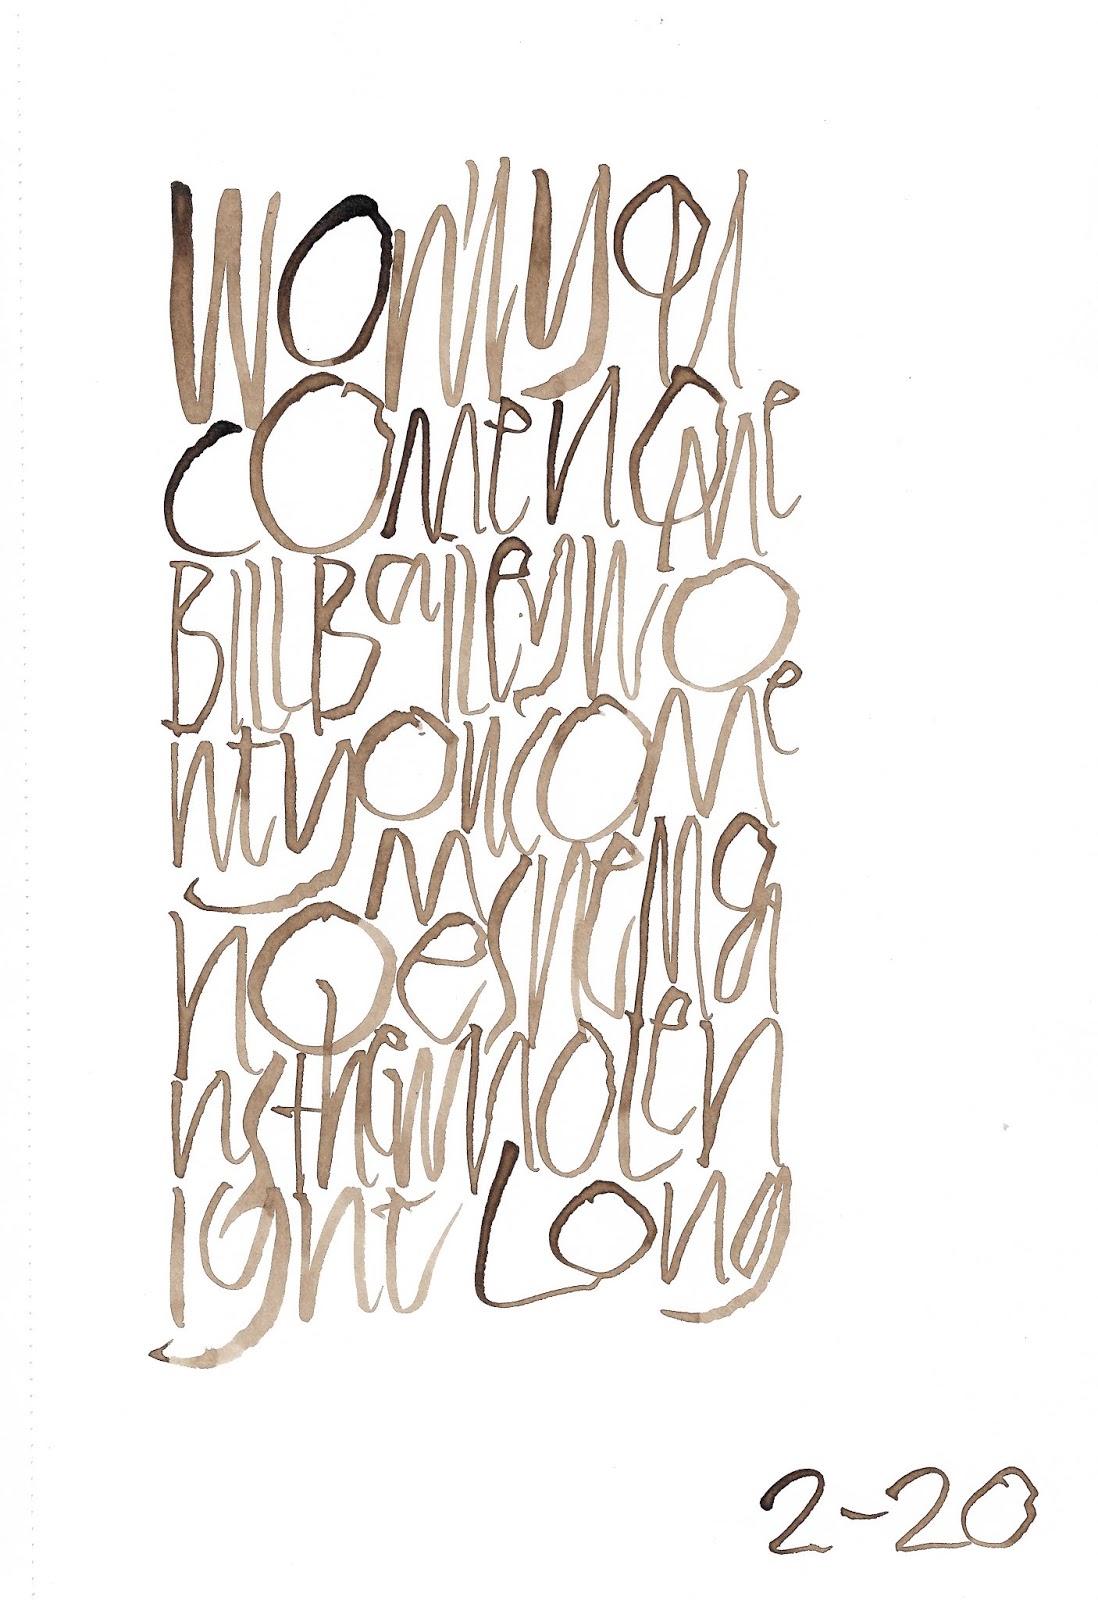 Won't you
come home
Bill Bailey wo
nt you come
home she moa
ns the whole n
ight Long
2-20